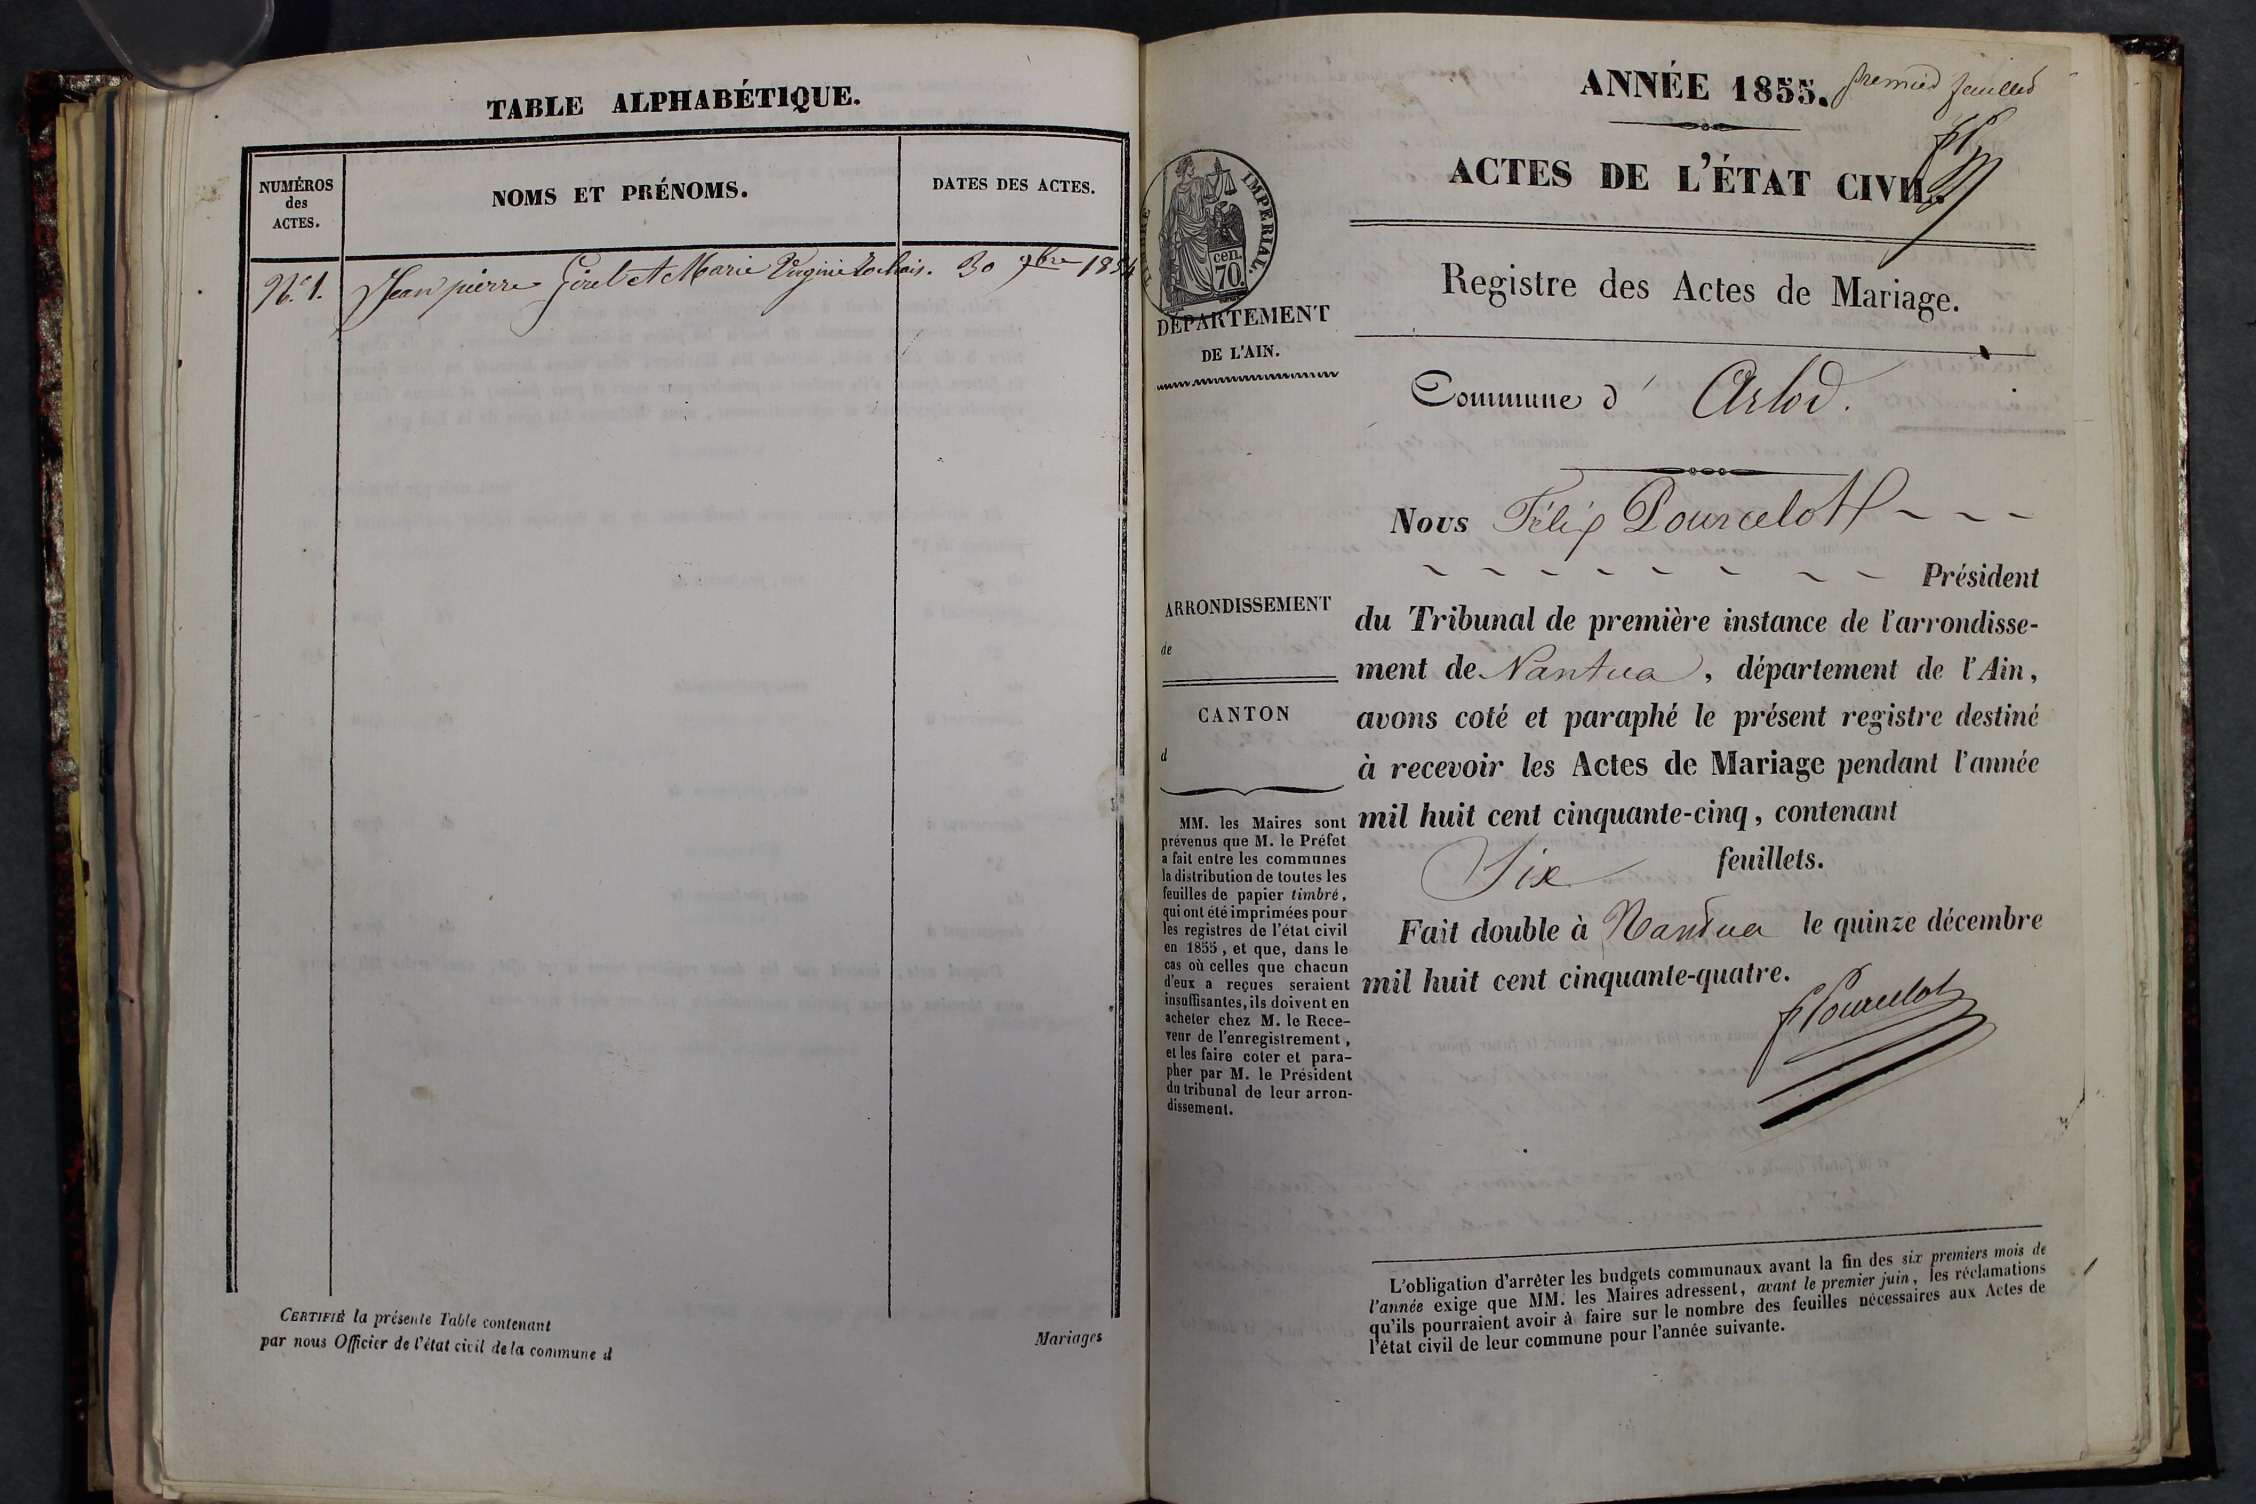 TABLE ALPHABÉTIQUE.
NUMÉROS
des
ACTES.
NOMS ET PRÉNOMS.
DATES DES ACTES.
N.º 1. Jean pierre Girel et Marie Virginie 30 9bre 1854
CERTIFIÉ la présente Table contenant
par nous Officier de l'état civil de la commune d
Mariages
ANNÉE 1855.
premier feuillet
ACTES DE L'ÉTAT CIVIL.
TIMBRE IMPERIAL.
cen.
70.
Registre des Actes de Mariage.
DÉPARTEMENT
DE L'AIN.
Commune d' Arlod.
Nous Félix Pourcelot
Président
ARRONDISSEMENT
de
du Tribunal de première instance de l'arrondisse-
ment de Nantua, département de l'Ain,
CANTON
d
avons coté et paraphé le présent registre destiné
à recevoir les Actes de Mariage pendant l'année
mil huit cent cinquante-cinq, contenant
Six feuillets.
Fait double à Nantua le quinze décembre
mil huit cent cinquante-quatre.
F Pourcelot
MM. les Maires sont
prévenus que M. le Préfet
a fait entre les communes
la distribution de toutes les
feuilles de papier timbré,
qui ont été imprimées pour
les registres de l'état civil
en 1855, et que, dans le
cas où celles que chacun
d'eux a reçues seraient
insuffisantes, ils doivent en
acheter chez M. le Rece-
veur de l'enregistrement,
et les faire coter et para-
pher par M. le Président
du tribunal de leur arron-
dissement.
L'obligation d'arrêter les budgets communaux avant la fin des six premiers mois de
l'année exige que MM. les Maires adressent, avant le premier juin, les réclamations
qu'ils pourraient avoir à faire sur le nombre des feuilles nécessaires aux Actes de
l'état civil de leur commune pour l'année suivante.